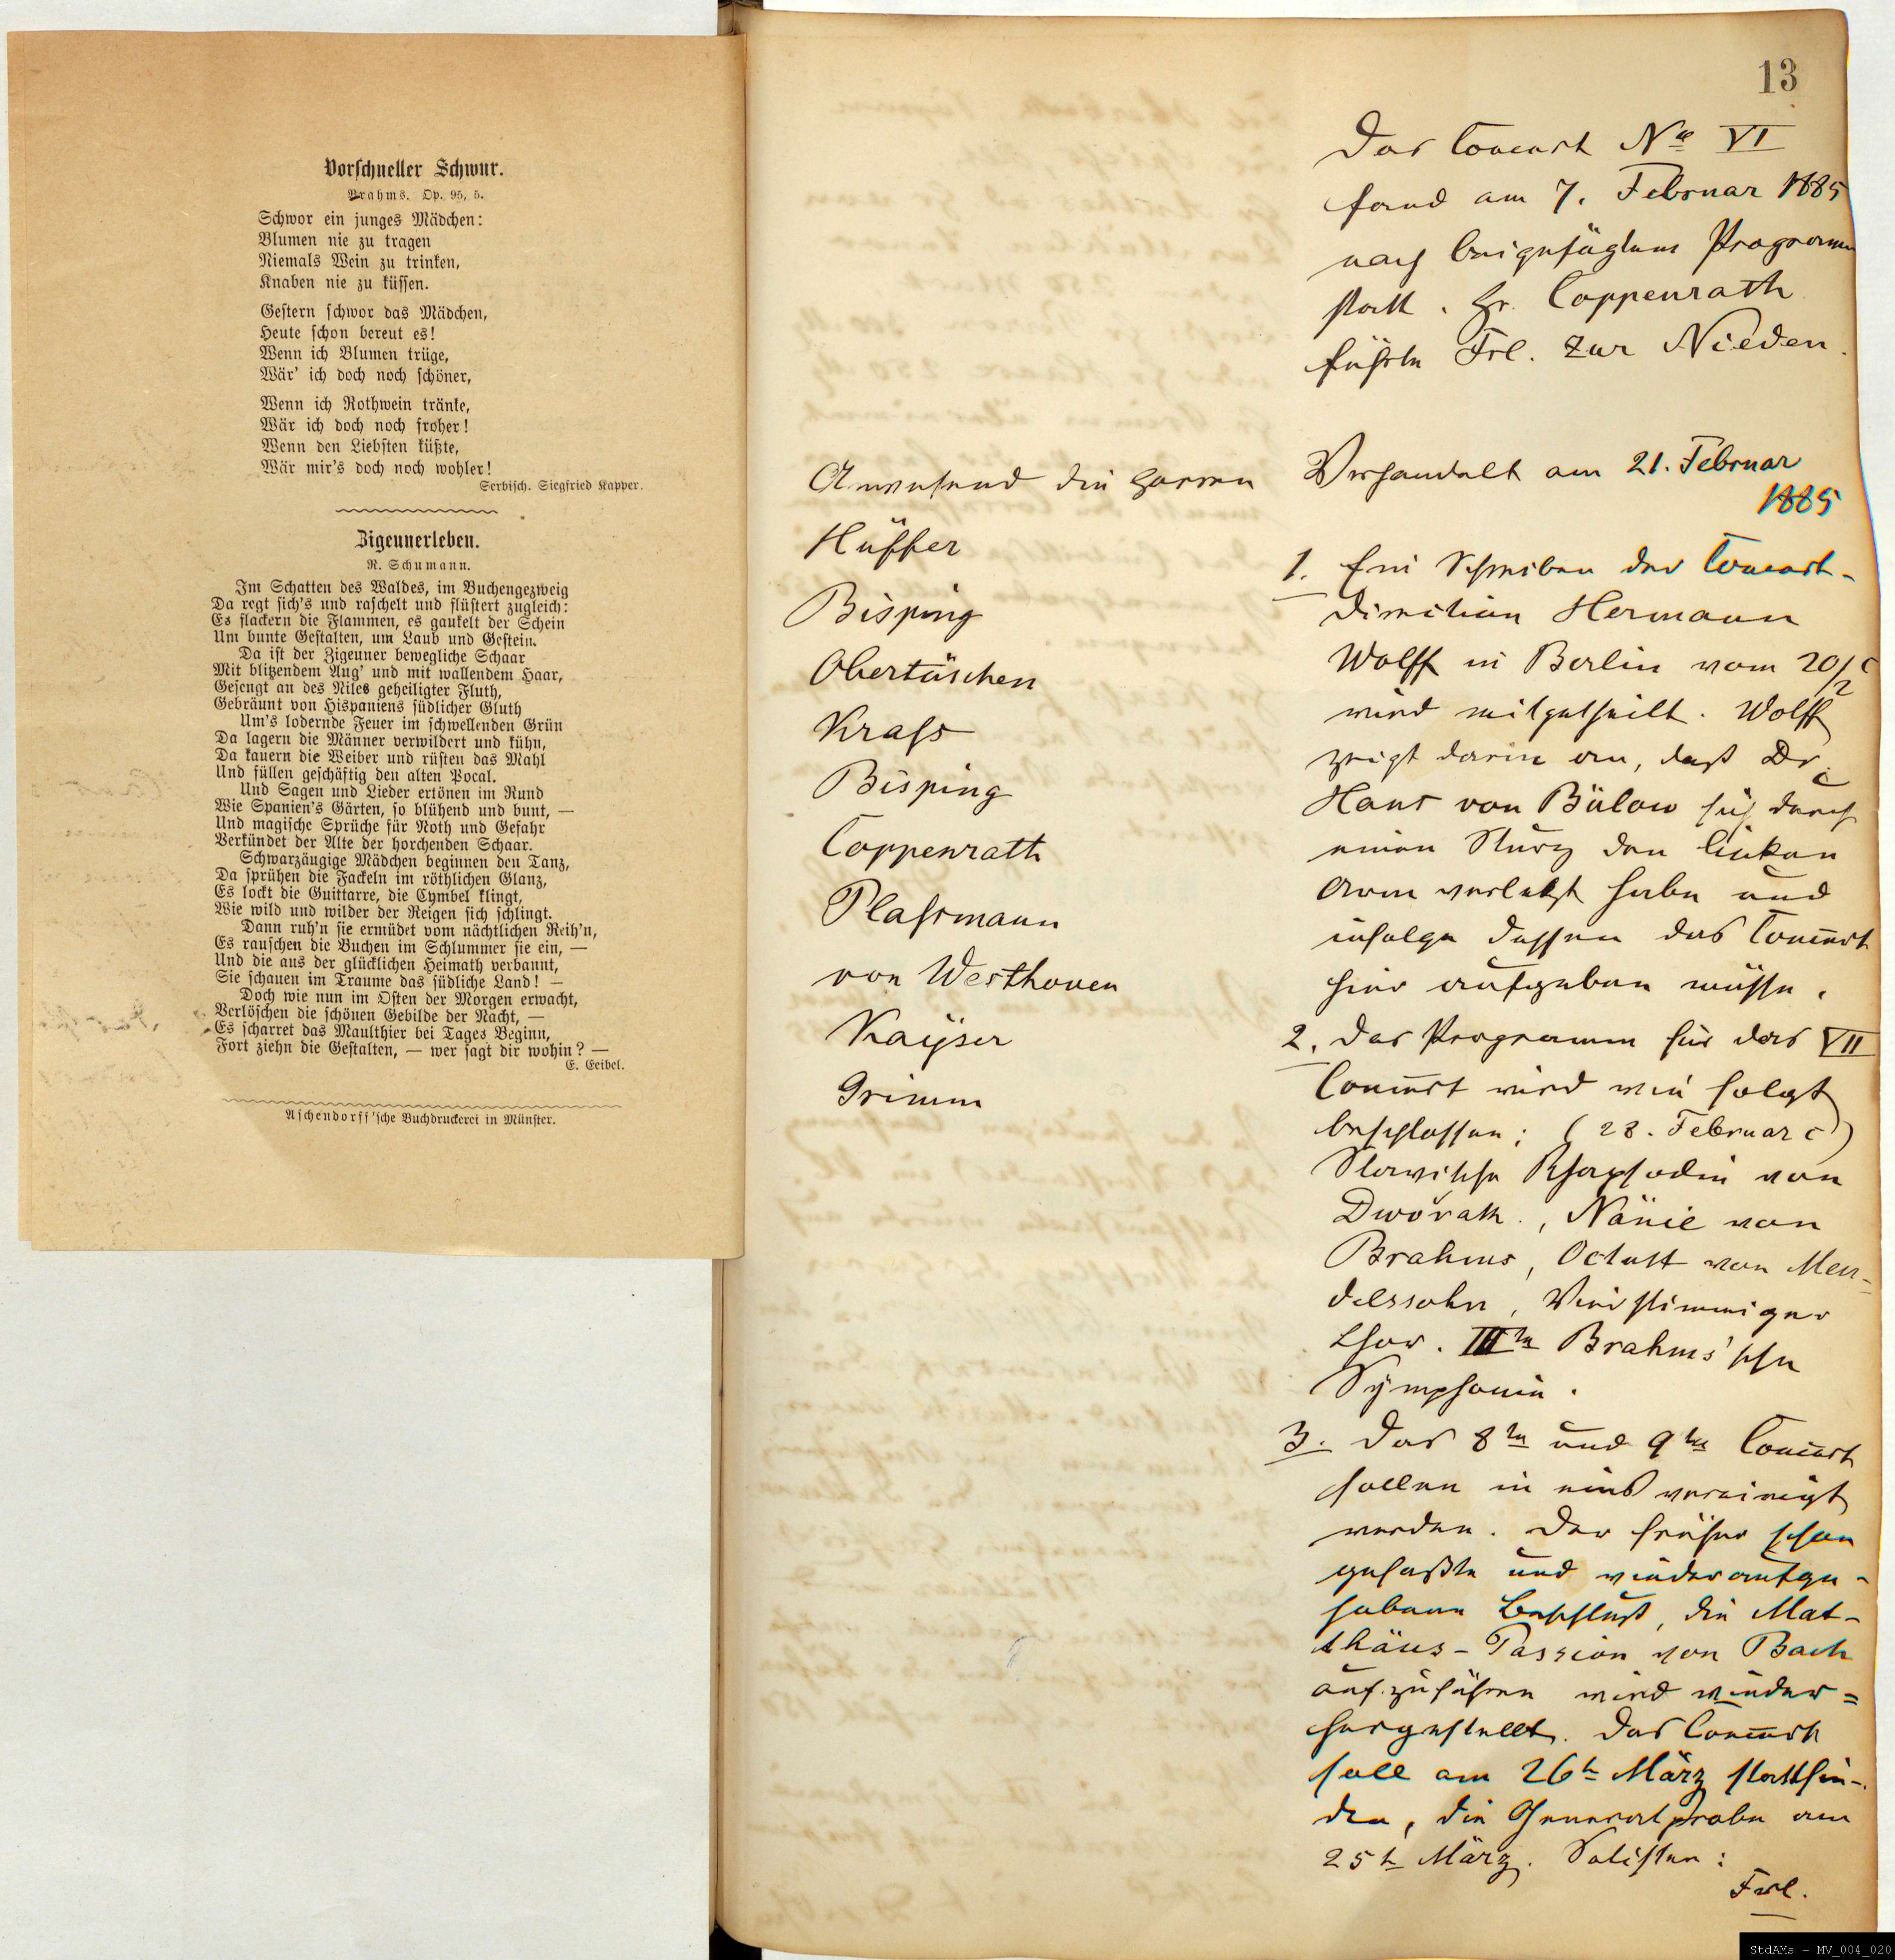 Vorschneller Schwur.
Brahms. Op. 95, 5.
Schwor ein junges Mädchen:
Blumen nie zu tragen
Niemals Wein zu trinken,
Knaben nie zu küssen.
Gestern schwor das Mädchen,
Heute schon bereut es!
Wenn ich Blumen trüge,
Wär' ich doch noch schöner,
Wenn ich Rothwein tränke,
Wär ich doch noch froher!
Wenn den Liebsten küßte,
Wär mir's doch noch wohler!
Serbisch. Siegfried Kapper.
Zigeunerleben.
R. Schumann.
Im Schatten des Waldes, im Buchengezweig
Da regt sich's und raschelt und flüstert zugleich:
Es flackern die Flammen, es gaukelt der Schein
Um bunte Gestalten, um Laub und Gestein.
Da ist der Zigeuner bewegliche Schaar
Mit blitzendem Aug' und mit wallendem Haar,
Gesengt an des Niles geheiligter Fluth,
Gebräunt von Hispaniens südlicher Gluth
Um's lodernde Feuer im schwellenden Grün
Da lagern die Männer verwildert und kühn,
Da kauern die Weiber und rüsten das Mahl
Und füllen geschäftig den alten Pocal.
Und Sagen und Lieder ertönen im Rund
Wie Spanien's Gärten, so blühend und bunt, —
Und magische Sprüche für Noth und Gefahr
Verkündet der Alte der horchenden Schaar.
Schwarzäugige Mädchen beginnen den Tanz,
Da sprühen die Fackeln im röthlichen Glanz,
Es lockt die Guittarre, die Cymbel klingt,
Wie wild und wilder der Reigen sich schlingt.
Dann ruh'n sie ermüdet vom nächtlichen Reih'n,
Es rauschen die Buchen im Schlummer sie ein, —
Und die aus der glücklichen Heimath verbannt,
Sie schauen im Traume das südliche Land! —
Doch wie nun im Osten der Morgen erwacht,
Verlöschen die schönen Gebilde der Nacht, —
Es scharret das Maulthier bei Tages Beginn,
Fort ziehn die Gestalten, — wer sagt dir wohin? —
E. Geibel.
Aschendorff'sche Buchdruckerei in Münster.
13
Das Concert No VI
fand am 7. Februar 1885
nach beigefügtem Programm
statt. Hr. Coppenrath
führte Frl. zur Nieden.
Anwesend die Herren
Hüffer
Bisping
Obertüschen
Krass
Bisping
Coppenrath
Plassmann
von Westhoven
Kayser
Grimm
Verhandelt am 21. Februar
1885
1. Ein Schreiben der Concert-
direction Hermann
Wolff in Berlin vom 20/2 c
wird mitgetheilt. Wolff
zeigt darin an, daß Dr.
Hans von Bülow sich durch
einen Sturz den linken
Arm verletzt habe und
infolge dessen das Concert
hier aufgeben müsse.
2. Das Programm für das VII
Concert wird wie folgt
beschlossen: (28. Februar c)
Slavische Rhapsodie von
Dwořak., Nänie von
Brahms, Octett von Men-
delssohn, Vierstimmiger
Chor. IIIte Brahms'sche
Symphonie.
3. Das 8te und 9te Concert
sollen in eins vereinigt
werden. Der früher schon
gefaßte und wiederaufge-
hobene Beschluß, die Mat-
thäus-Passion von Bach
aufzuführen wird wieder=
hergestellt. Das Concert
soll am 26t März stattfin-
den, die Generalprobe am
25t März. Solisten:
Frl.
StdAMs - MV_004_020